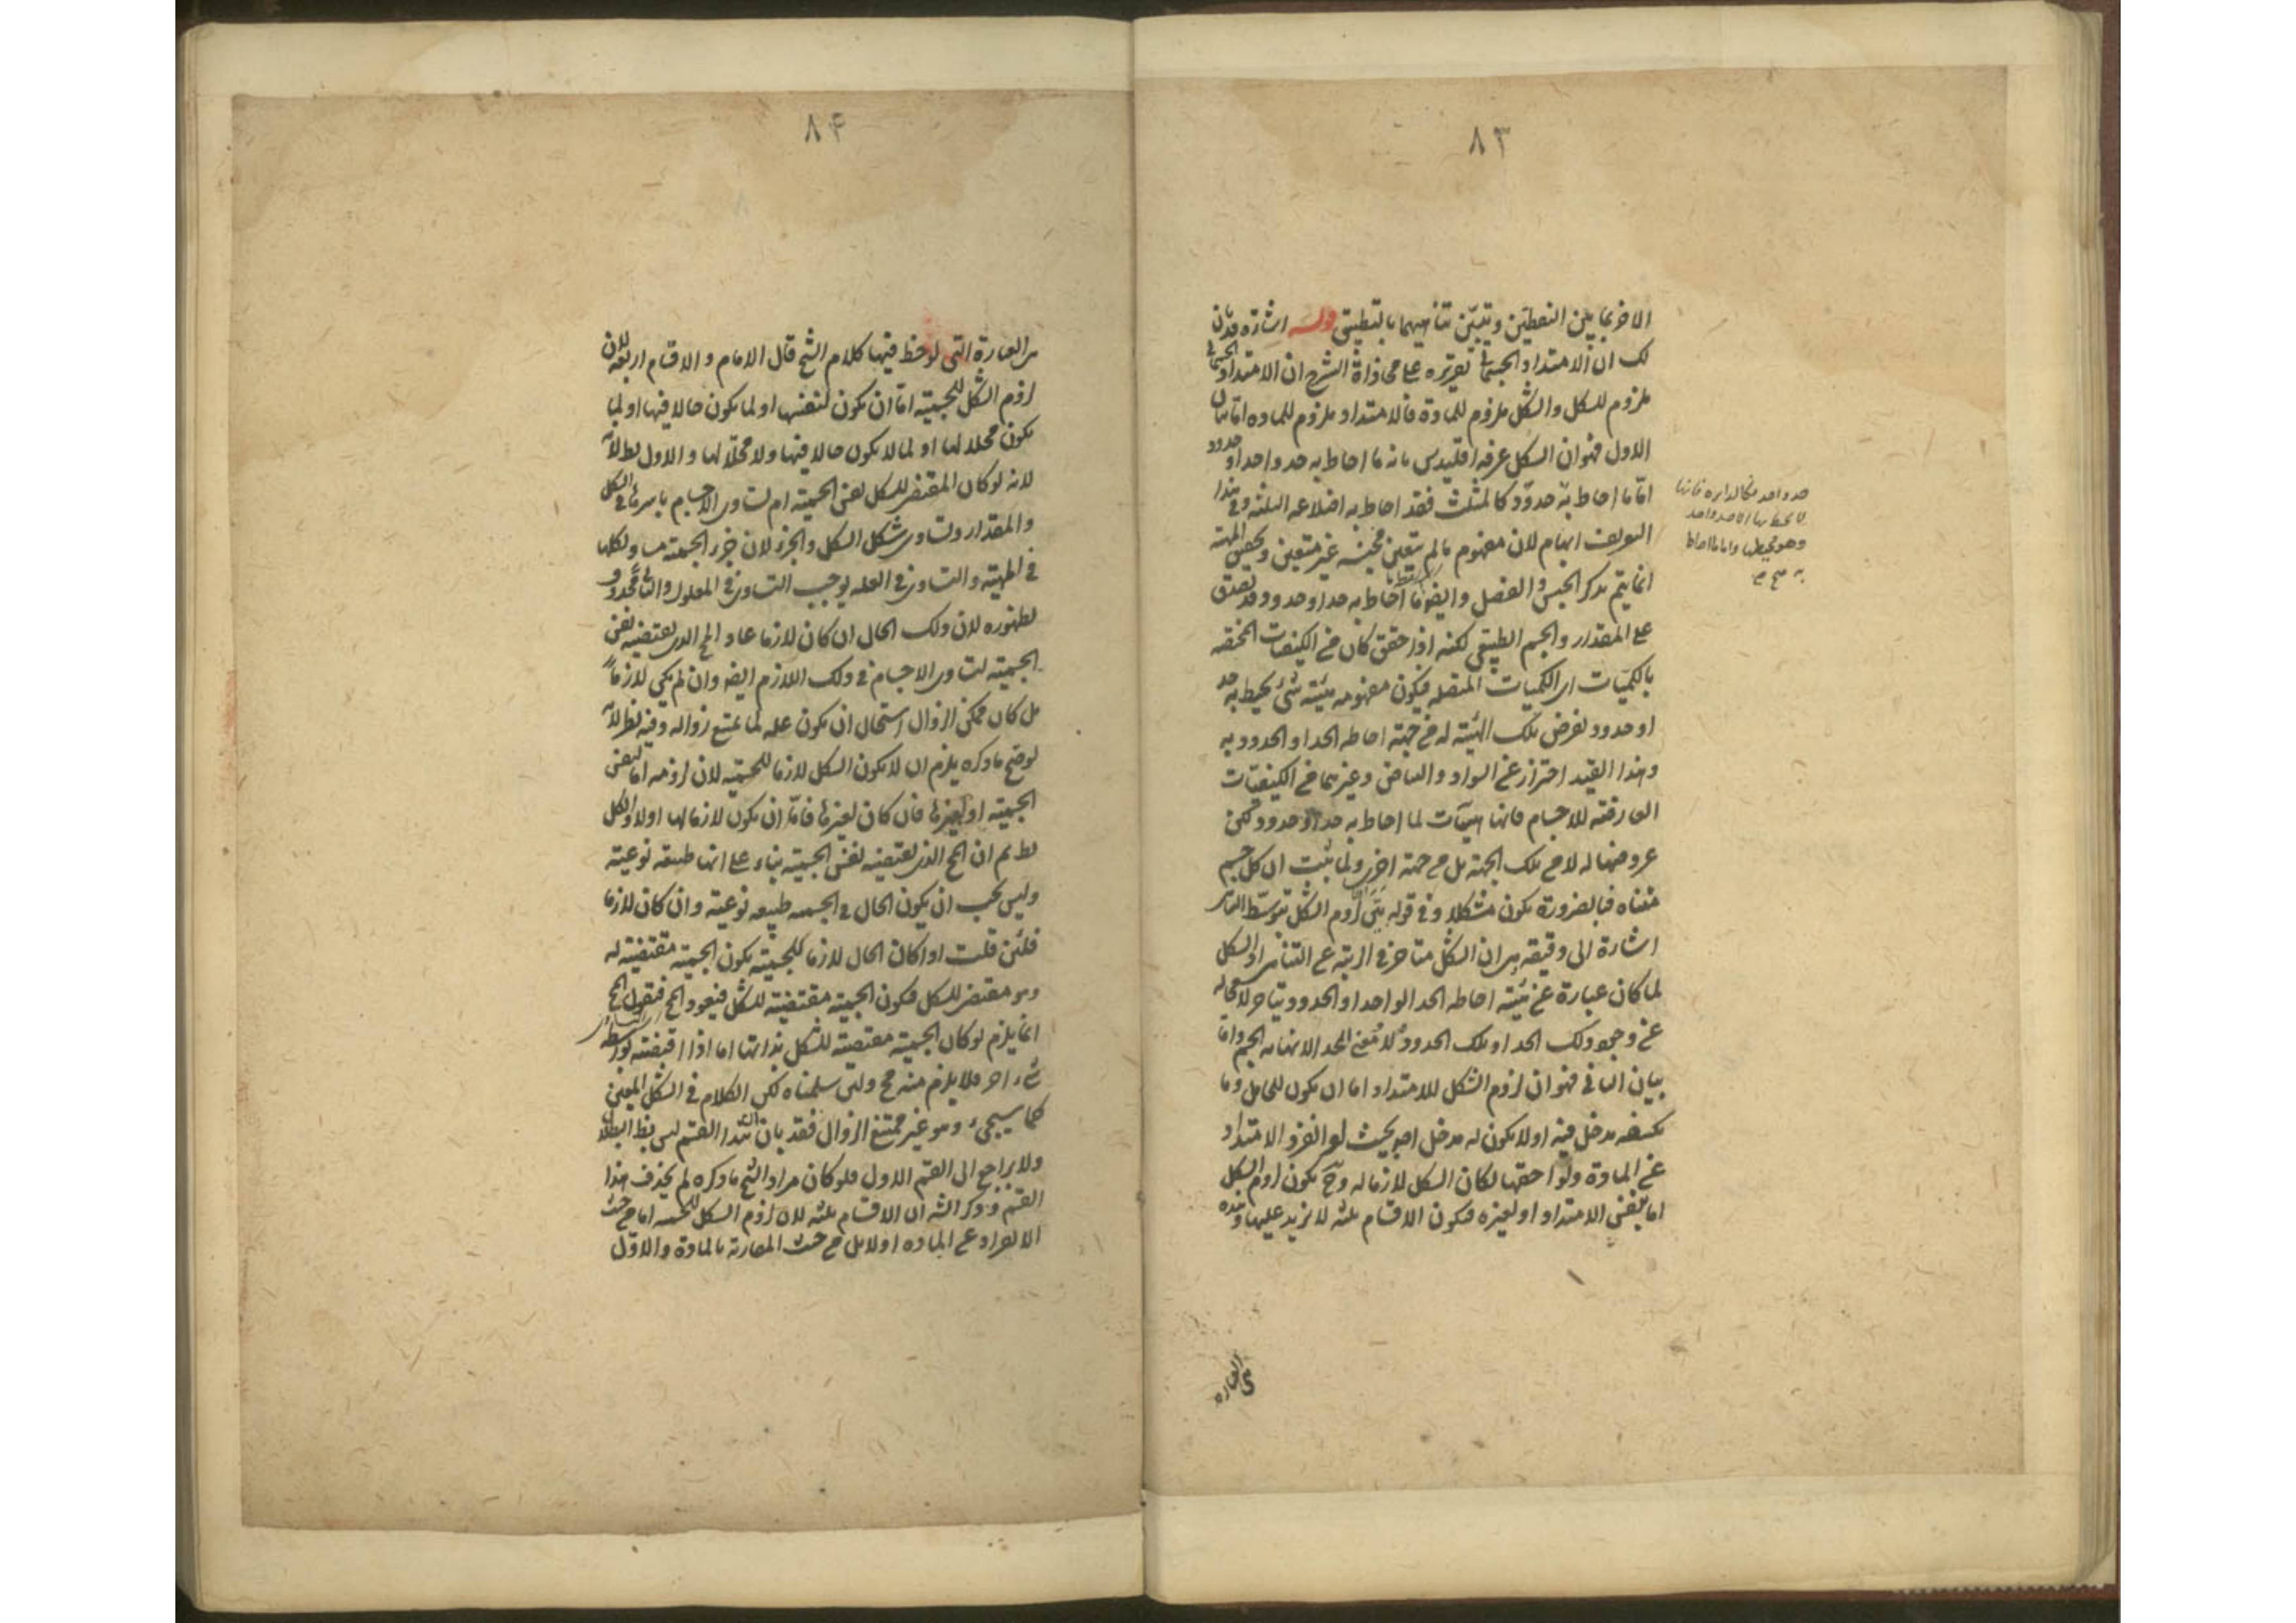 ٨٣
الاخر بما بين النقطتين وتبين تناهيهما بالتطبيق قوله اشارة قد بان
لك ان الامتداد الجسمانى تقريره على محاذاة الشرح ان الامتداد الجسمانى
ملزوم للشكل والشكل ملزوم للمادة فالامتداد ملزوم للمادة اما بيان
الاول فهو ان الشكل عرفه اقليدس بانه ما احاط به حد واحد او حدود
اما ما احاط به حدود كالمثلث فقد احاط به اضلاعه الثلثة وفى هذا
التعريف ابهام لان مفهوم ما لم يتعين فجنسه غير متعين وتحقيق المهية
انما يتم بذكر الجنس والفصل وايضا ما احاط به حد او حدود قد يصدق
على المقدار والجسم الطبيعى لكنه اذا حقق كان من الكيفيات المختصة
بالكميات اى الكميات المتصلة فيكون مفهومه هيئة شئ يحيط به حد
او حدود تعرض تلك الهيئة له من جهة احاطة الحد او الحدود به
وهذا القيد احتراز عن السواد والبياض وغيرهما من الكيفيات
العارضة للاجسام فانها هيآت لما احاط به حد او حدود لكن
عروضها له لا من تلك الجهة بل من جهة اخرى ولما ثبت ان كل جسم
متناه فبالضرورة يكون مشكلا وفى قوله بين لزوم الشكل بتوسط التناهى
اشارة الى دقيقة هى ان الشكل متاخر فى الرتبة عن التناهى اذ الشكل
لما كان عبارة عن هيئة احاطة الحد الواحد او الحدود يتاخر لا محالة
عن وجود ذلك الحد او تلك الحدود ولا معنى للحد الا نهاية الجسم واما
بيان الثانى فهو ان لزوم الشكل للامتداد اما ان يكون للحامل وما
يكتنفه مدخل فيه او لا يكون له مدخل اصلا بحيث لو انفرد الامتداد
عن المادة ولواحقها لكان الشكل لازما له وح يكون لزوم الشكل
اما لنفس الامتداد او لغيره فيكون الاقسام ثلثة لا مزيد عليها وهذه
هى العبارة
حد واحد فكالدايرة فانها
لا يحيط بها الا حد واحد
وهو محيطها واما ما احاط
به صح
٨٤
هى العبارة التى لوحظ فيها كلام الشيخ قال الامام والاقسام اربعة لان
لزوم الشكل للجسمية اما ان يكون لنفسها او لما يكون حالا فيها او لما
يكون محلا لها او لما لا يكون حالا فيها ولا محلا لها والاول بط
لانه لو كان المقتضى للشكل نفس الجسمية لتساوى الاجسام باسرها فى الشكل
والمقدار وتساوى شكل الكل والجزء لان جزء الجسمية مساو لكلها
فى المهية والتساوى فى العلة يوجب التساوى فى المعلول والثانى محذوف
لظهوره لان ذلك الحال ان كان لازما عاد المح الذى يقتضيه نفس
الجسمية لتساوى الاجسام فى ذلك اللازم ايضا وان لم يكن لازما
بل كان ممكن الزوال استحال ان يكون علة لما يمتنع زواله وفيه نظر لانه
لو صح ما ذكره يلزم ان لا يكون الشكل لازما للجسمية لان لزومه اما لنفس
الجسمية او لغيرها فان كان لغيرها فاما ان يكون لازما لها اولا والكل
بط ثم ان المح الذى يقتضيه نفس الجسمية بناء على انها طبيعة نوعية
وليس يجب ان يكون الحال فى الجسمية طبيعة نوعية وان كان لازما
فلئن قلت اذا كان الحال لازما للجسمية يكون الجسمية مقتضية له
وهو مقتضى للشكل فيكون الجسمية مقتضية للشكل فيعود المح فنقول المح
انما يلزم لو كان الجسمية مقتضية للشكل بذاتها اما اذا اقتضته بواسطة
شئ اخر فلا يلزم منه مح ولئن سلمناه لكن الكلام فى الشكل المعين
كما سيجىء وهو غير ممتنع الزوال فقد بان ان هذا القسم ليس بظ البطلان
ولا براجع الى القسم الاول فلو كان مراد الشيخ ما ذكره لم يحذف هذا
القسم وذكر الشه ان الاقسام ثلثة لان لزوم الشكل للجسمية اما من حيث
الانفراد عن المادة اولا بل من حيث المقارنة بالمادة والاول